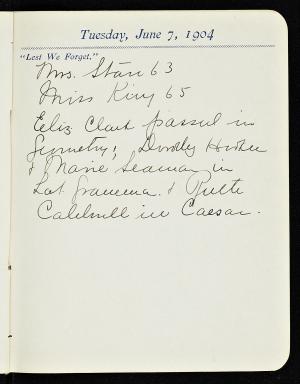 Tuesday, June 7, 1904
"Lest We Forget."
Mrs. Starr 63
Miss King 65
Eliz. Clark passed in
Geometry; Dorothy
& Marie Seaman in
Lat. gramma. & Ruth
Caldwell in Caesar.